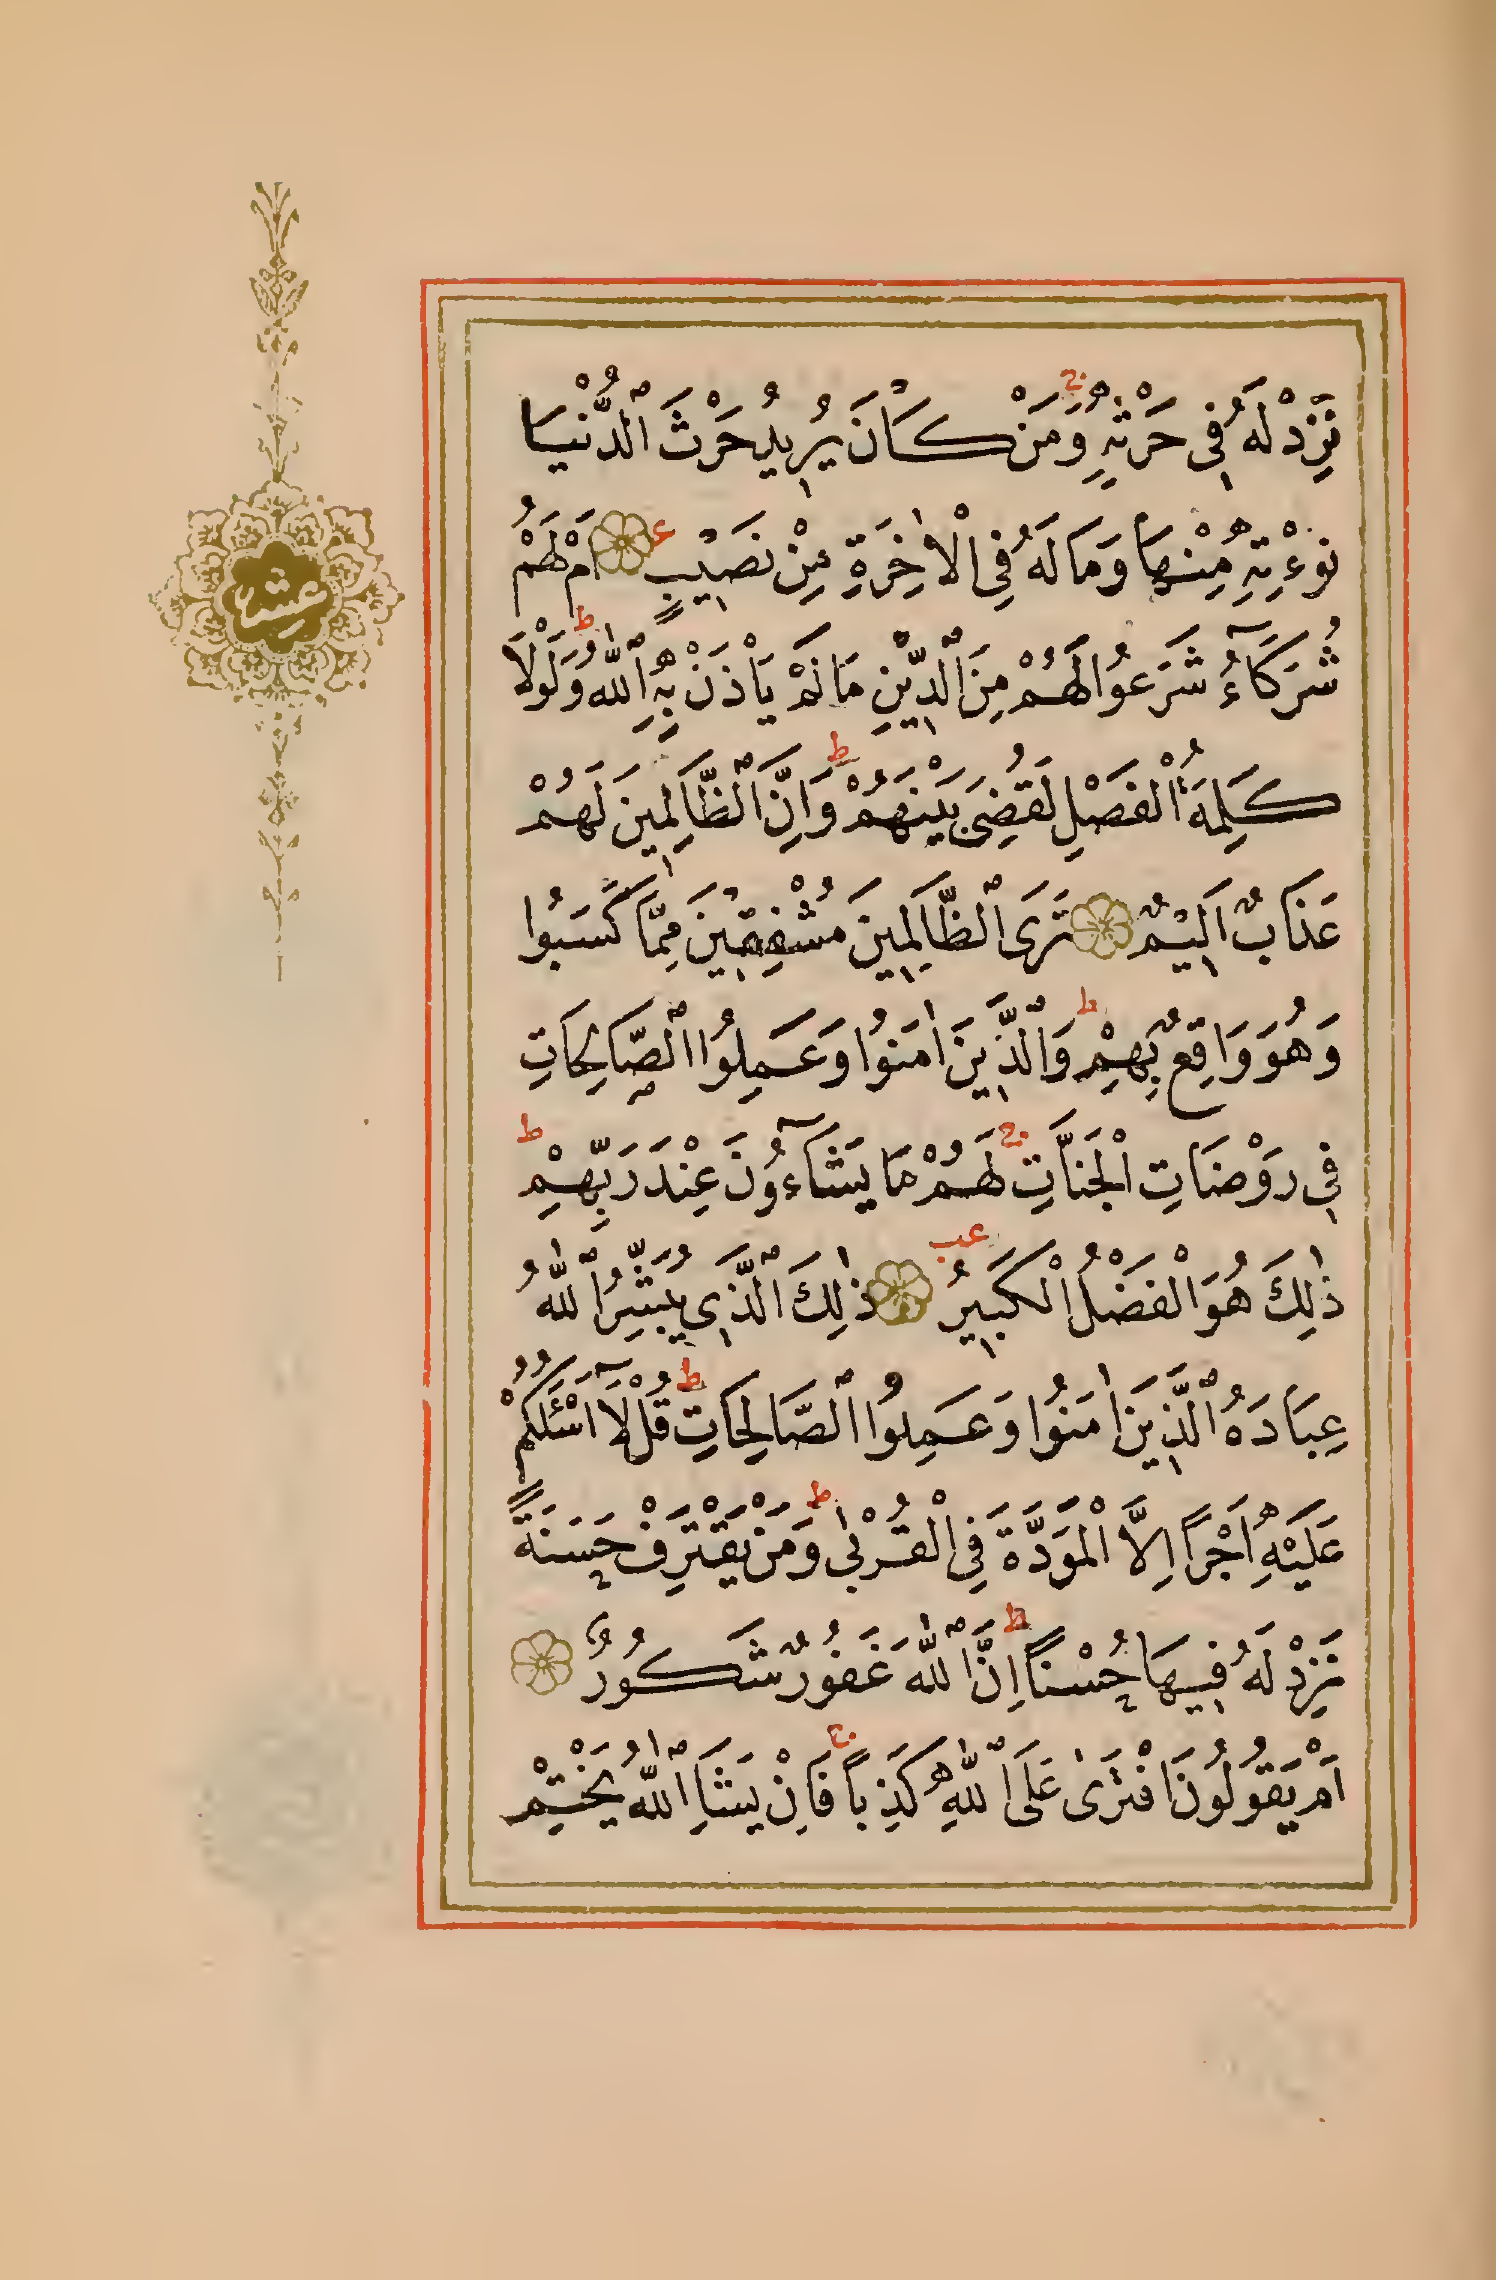 نَزِدْ لَهُ فِي حَرْثِهِ ۚ وَمَنْ كَانَ يُرِيدُ حَرْثَ الدُّنْيَا
نُؤْتِهِ مِنْهَا وَمَا لَهُ فِي الْاٰخِرَةِ مِنْ نَصِيبٍ ع اَمْ لَهُمْ
شُرَكَآءُ شَرَعُوا لَهُمْ مِنَ الدِّينِ مَا لَمْ يَأْذَنْ بِهِ اللّٰهُ ط وَلَوْلَا
كَلِمَةُ الْفَصْلِ لَقُضِيَ بَيْنَهُمْ ط وَاِنَّ الظَّالِمِينَ لَهُمْ
عَذَابٌ اَلِيمٌ تَرَى الظَّالِمِينَ مُشْفِقِينَ مِمَّا كَسَبُوا
وَهُوَ وَاقِعٌ بِهِمْ ط وَالَّذِينَ اٰمَنُوا وَعَمِلُوا الصَّالِحَاتِ
فِي رَوْضَاتِ الْجَنَّاتِ ج لَهُمْ مَا يَشَآءُونَ عِنْدَ رَبِّهِمْ ط
ذٰلِكَ هُوَ الْفَضْلُ الْكَبِيرُ عب ذٰلِكَ الَّذِي يُبَشِّرُ اللّٰهُ
عِبَادَهُ الَّذِينَ اٰمَنُوا وَعَمِلُوا الصَّالِحَاتِ ط قُلْ لَآ اَسْئَلُكُمْ
عَلَيْهِ اَجْرًا اِلَّا الْمَوَدَّةَ فِي الْقُرْبٰى ط وَمَنْ يَقْتَرِفْ حَسَنَةً
نَزِدْ لَهُ فِيهَا حُسْنًا ط اِنَّ اللّٰهَ غَفُورٌ شَكُورٌ
اَمْ يَقُولُونَ افْتَرٰى عَلَى اللّٰهِ كَذِبًا ج فَاِنْ يَشَاِ اللّٰهُ يَخْتِمْ
عشر